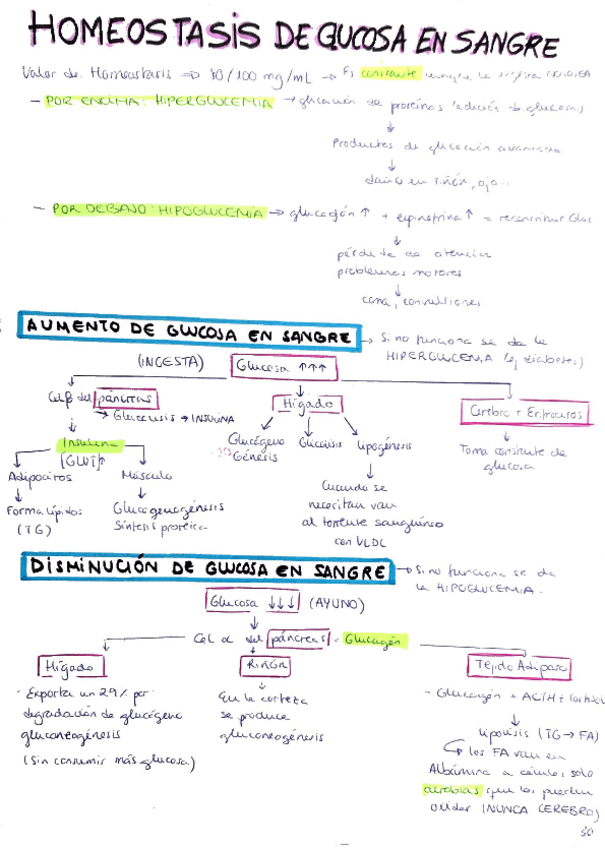 HOMEOSTASIS DE GUCOSA EN SANGRE
Valor de Homeostasis => 80/100 mg/mL -> Es constante
- POR ENCIMA: HIPERGLUCEMIA -> glicación de proteínas (adición de glucosa)
↓
Productos de glicación avanzada
↓
daño en riñón, ojo...
- POR DEBAJO: HIPOGLUCEMIA -> glucagón ↑ + epinefrina ↑ =
↓
pérdida de atención
problemas motores
↓
coma, convulsiones
AUMENTO DE GLUCOSA EN SANGRE -> Si no funciona se da la
HIPERGLUCEMIA (ej diabetes)
(INGESTA) Glucosa ↑↑↑
Cel β del páncreas
-> Glucolisis -> INSULINA
Hígado
Cerebro + Eritrocitos
Insulina
(GLUT)↑
Glucógeno
Génesis
Glicolisis
Lipogénesis
Toma constante de
glucosa
Adipocitos
Músculo
Forma lípidos
(TG)
Glucogenogénesis
Síntesis proteica
Cuando se
necesitan van
al torrente sanguíneo
con VLDL
DISMINUCIÓN DE GLUCOSA EN SANGRE -> Si no funciona se da
la HIPOGLUCEMIA.
Glucosa ↓↓↓ (AYUNO)
Cel α del páncreas - Glucagón
Hígado
RIÑÓN
Tejido Adiposo
- Exporta un 29% por
degradación de glucógeno
gluconeogénesis
(Sin consumir más glucosa)
En la corteza
se produce
gluconeogénesis
- Glucagón + ACTH + Cortisol
↓
Lipólisis (TG → FA)
los FA van en
Albúmina a células solo
aerobias que los puedan
oxidar (NUNCA CEREBRO)
30